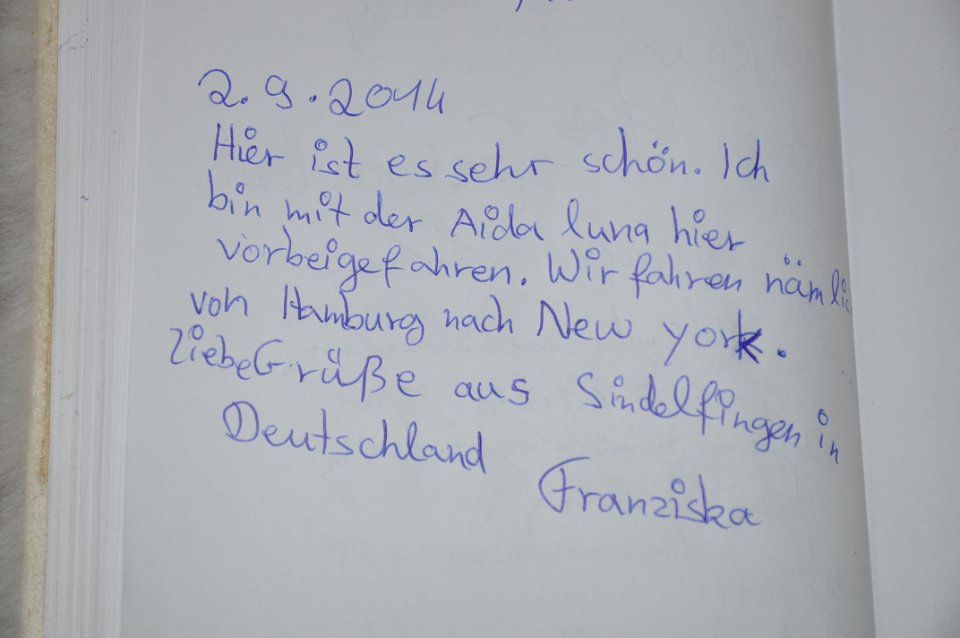 2.9.2014
Hier ist es sehr schön. Ich
bin mit der Aida luna hier
vorbeigefahren. Wir fahren nämlic
von Hamburg nach New york.
liebe Grüße aus Sindelfingen in
Deutschland
Franziska